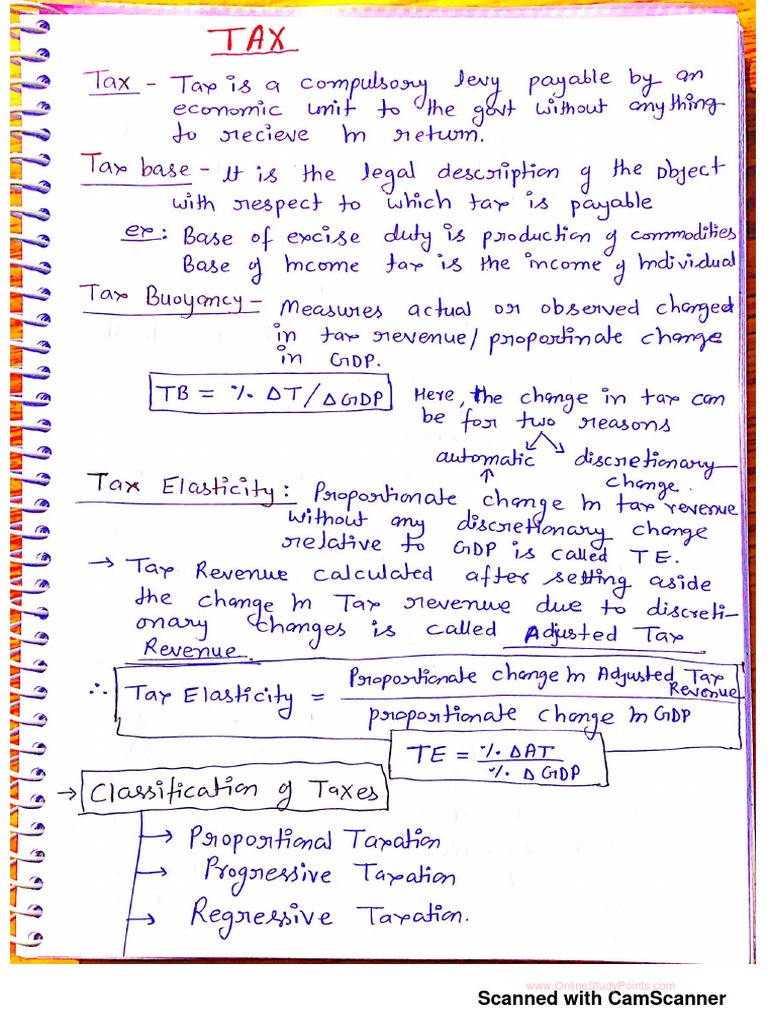 TAX
Tax - Tax is a compulsory levy payable by an
economic unit to the govt without anything
to recieve in return.
Tax base - It is the legal description of the object
with respect to which tax is payable
ex: Base of excise duty is production of commodities
Base of Income tax is the income of Individual
Tax Buoyancy - Measures actual or observed changed
in tax revenue/ proportinate change
in GDP.
TB = % ΔT/ΔGDP
Here, the change in tax can
be for two reasons
automatic discretionary
change.
Tax Elasticity: Proportionate change in tax revenue
without any discretionary change
relative to GDP is called TE.
→ Tax Revenue calculated after setting aside
the change in Tax revenue due to discreti-
onary changes is called Adjusted Tax
Revenue.
∴ Tax Elasticity = Proportionate change in Adjusted Tax Revenue
proportionate change in GDP
TE = % ΔAT
% Δ GDP
→ Classification of Taxes
→ Proportional Taxation
→ Progressive Taxation
→ Regressive Taxation.
www.OnlineStudyPoints.com
Scanned with CamScanner